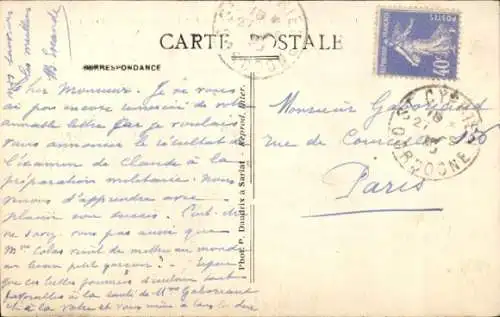 nos
les meilleurs
CARTE POSTALE
CORRESPONDANCE
POSTES
40c
Cher Monsieur. Je ne vous
ai pas encore remercié de votre
aimable lettre car je voulais
vous annoncer le résultat de
l'examen de Claude à la
préparation militaire. Nous
venons d'apprendre avec
plaisir son succès. Peut-être
ne savez vous pas aussi que
Mme Colas vient de mettre au monde
un beau petit garçon! J'espère
que ces belles journées d'automne sont
favorables à la santé de Mme
à la vôtre et vous
Phot. P. Daudrix à Sarlat - Reprod. Inter.
Monsieur
rue de Courcelles 150
Paris
18
21
DORDOGNE
18
21
DORDOGNE